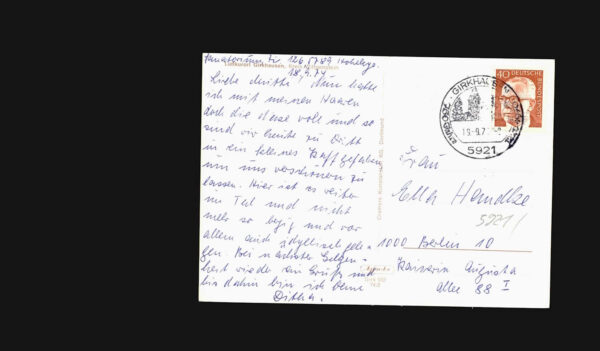 Sanatorium Zi. 126 5789
18.9.74
Luftkurort Girkhausen, Kreis Wittgenstein
Nun hatte
ich mit meinen Haaren
doch die Nase voll und so
sind wir heute zu Dritt
in ein kleines Kaff gefahren
um uns verschönen zu
lassen. Hier ist es weiter
im Tal und nicht
mehr so bergig und vor
allem auch idyllisch gele-
gen. Bei nächster Gelegen-
heit wieder ein Gruß und
bis dahin bin ich Deine
Cramers Kunstanstalt KG, Dortmund
GIRKHAUSEN
5921
40
DEUTSCHE
BUNDESPOST
Frau
Ella
5921/
1000 Berlin 10
Kaiserin Augusta
Allee 88 I